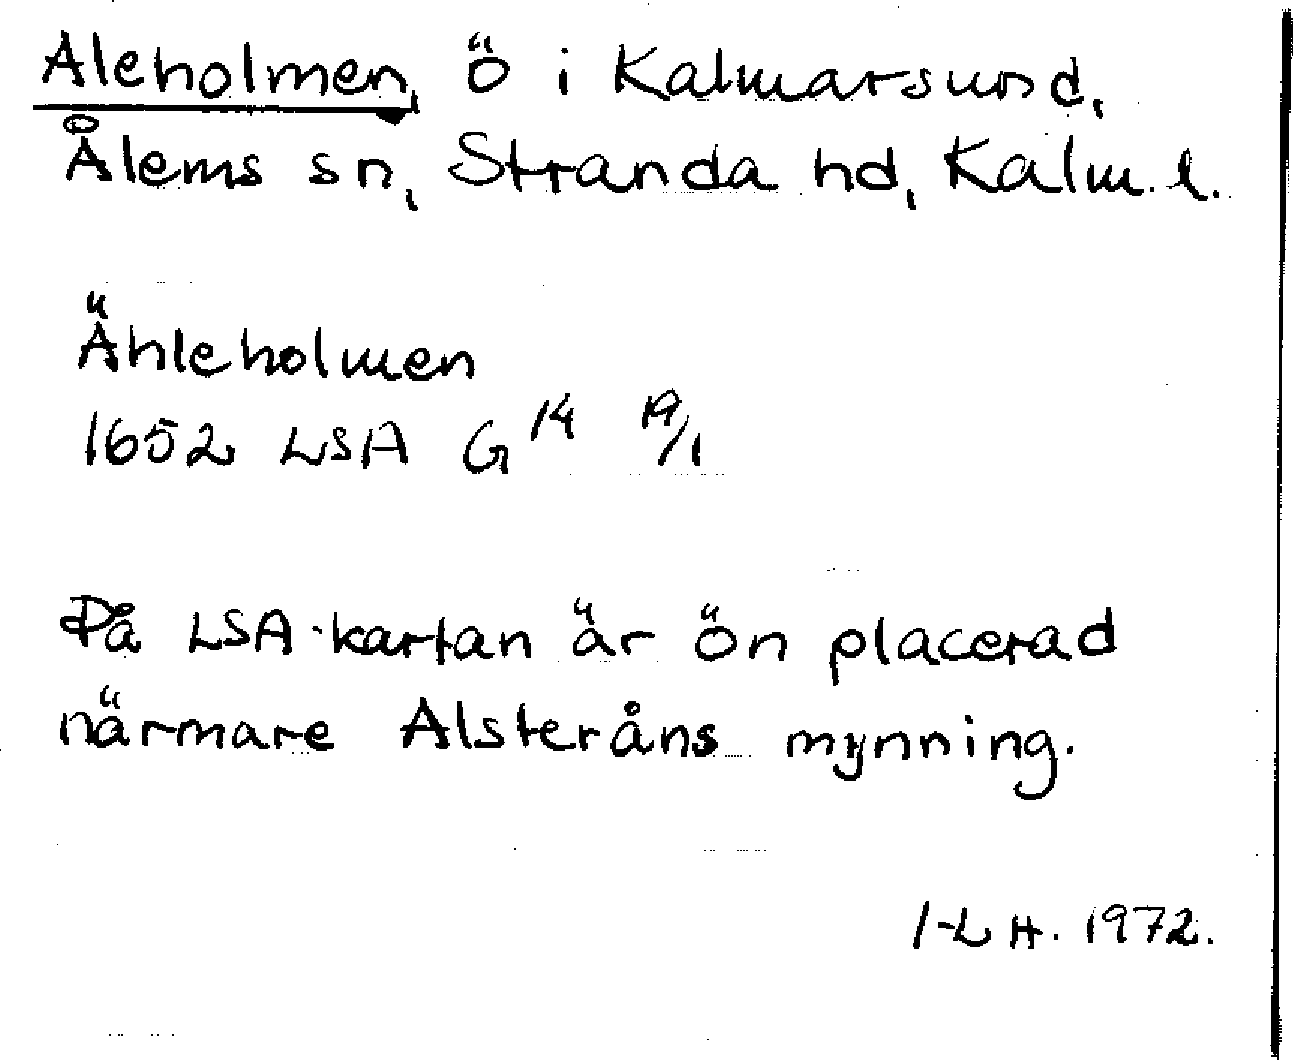 Aleholmen, ö i Kalmarsund,
Ålems sn, Stranda hd, Kalm. l.
Ähleholmen
1652 LSA G 14 19/1
På LSA-kartan är ön placerad
närmare Alsteråns mynning.
I-L H. 1972.